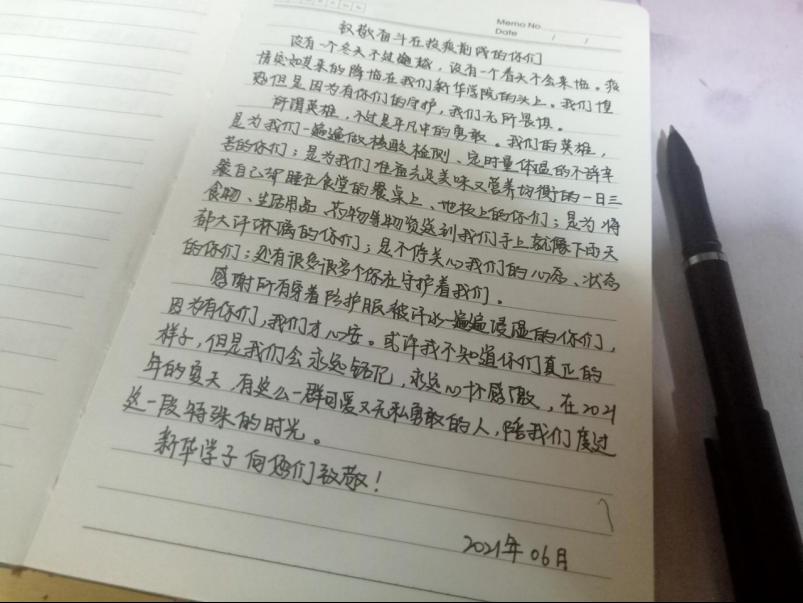 Memo No.
Date / /
致敬奋斗在抗疫前线的你们
没有一个冬天不过逾越，没有一个春天不会来临。疫
情突如其来的降临在我们新华学院的头上。我们惶
恐但是因为有你们的守护，我们无所畏惧。
所谓英雄，不过是平凡中的勇敢。我们的英雄，
是为我们一遍遍做核酸检测、定时量体温的不辞辛
苦的你们；是为我们准备充足美味又营养均衡的一日三
餐自己却睡在食堂的餐桌上、地板上的你们；是为将
食物、生活用品、药物等物资送到我们手上就像下雨天
都大汗淋漓的你们；是不停关心我们的心态、状态
的你们；还有很多很多个你在守护着我们。
感谢所有穿着防护服被汗水一遍遍浸湿的你们，
因为有你们，我们才心安。或许我不知道你们真正的
样子，但是我们会永远铭记，永远心怀感激，在2021
年的夏天，有这么一群可爱又无私勇敢的人，陪我们度过
这一段特殊的时光。
新华学子向你们致敬！
2021年06月